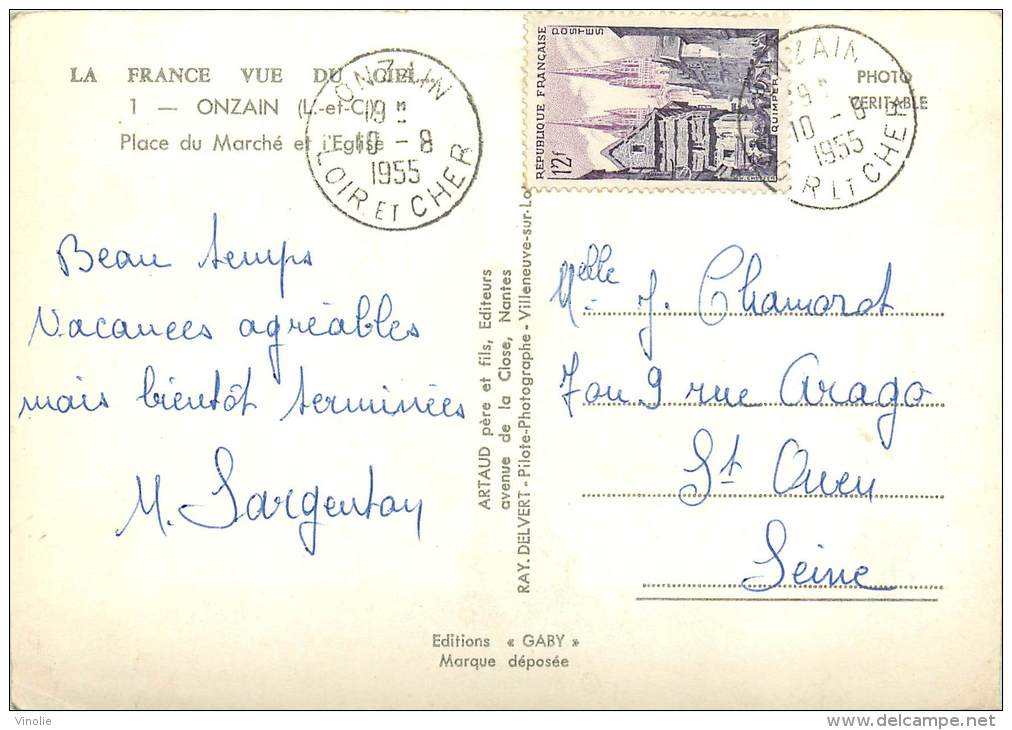 LA FRANCE VUE DU CIEL...
1 — ONZAIN (L.-et-C.)
Place du Marché et l'Eglise
ONZAIN
19H
10-8
1955
LOIR ET CHER
RÉPUBLIQUE FRANÇAISE
POSTES
12F
QUIMPER
ONZAIN
19H
10-8
1955
LOIR ET CHER
PHOTO
VERITABLE
Beau temps
Vacances agréables
mais bientôt terminées
M. Sargentoy
ARTAUD père et fils, Editeurs
avenue de la Close, Nantes
RAY. DELVERT - Pilote-Photographe - Villeneuve-sur-Lo
Melle J. Chamorot
9 rue Arago
St Ouen
Seine
Editions « GABY »
Marque déposée
Vinolie
delcampe.net